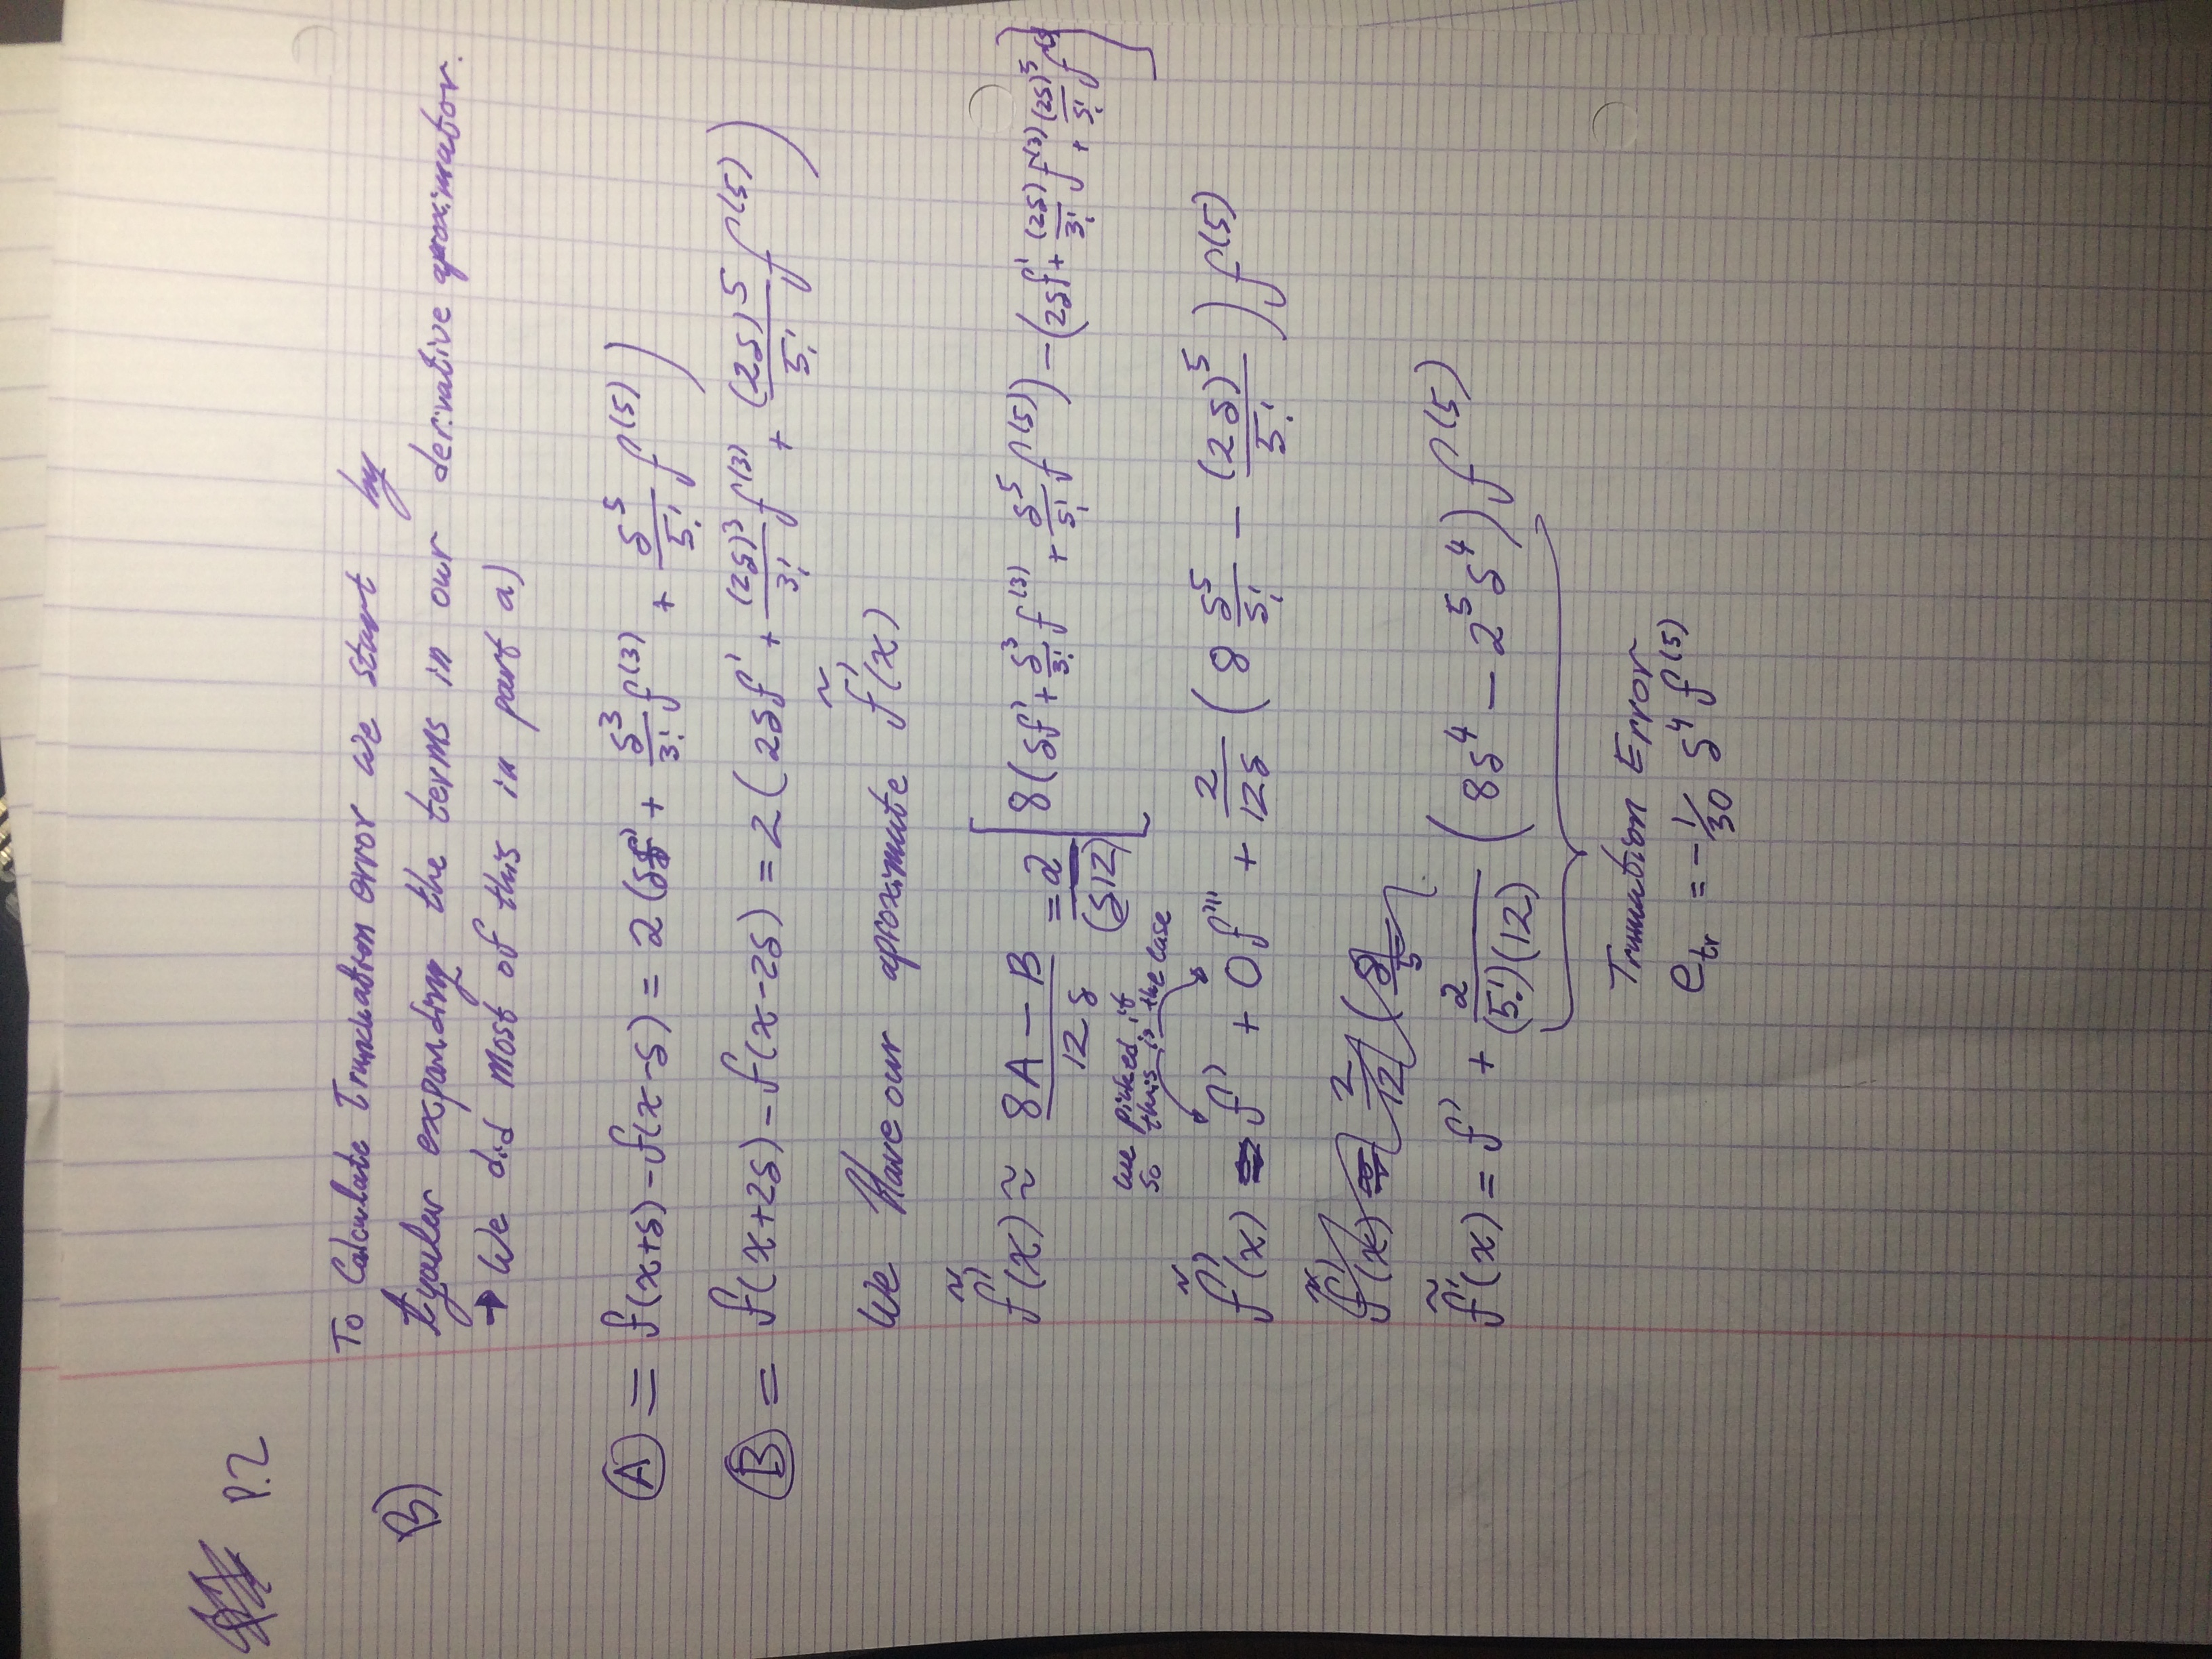 P.2
To Calculate Trunckation error we start by
B) tyaular expanding the terms in our derivative aproximator.
→ We did most of this in part a)
Ⓐ = f(x+δ) - f(x-δ) = 2 (δf' + δ³/3! f⁽³⁾ + δ⁵/5! f⁽⁵⁾)
Ⓑ = f(x+2δ) - f(x-2δ) = 2 ( 2δf' + (2δ)³/3! f⁽³⁾ + (2δ)⁵/5! f⁽⁵⁾ )
We Have our aproximate f̃'(x)
f̃'(x) ≈ 8A - B / 12δ = 2/(δ12) [ 8(δf' + δ³/3! f⁽³⁾ + δ⁵/5! f⁽⁵⁾) - (2δf' + (2δ)/3! f⁽³⁾ + (2δ)⁵/5! f⁽⁵⁾ ]
we picked it
so this is the case
f̃'(x) = f' + 0f''' + 2/12δ ( 8 δ⁵/5! - (2δ)⁵/5! ) f⁽⁵⁾
f̃'(x) = f' + 2/(5!)(12) ( 8δ⁴ - 2⁵δ⁴ ) f⁽⁵⁾
Error
e_tr = -1/30 δ⁴ f⁽⁵⁾